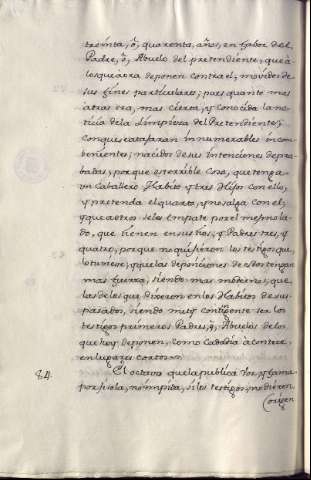 treinta, ô, quarenta, años, en fabor del
Padre, ô, Abuelo del pretendiente, que à
los que aora deponen contra el, movidos de
sus fines particulares; pues quanto mas
atras era, mas cierta, y conocida la no
ticia de la Limpieza del Pretendiente; y
con que se atajaran innumerables incom
benientes, nacidos de sus intenciones depra
badas, porque es terrible cosa, que tenga
un Caballero Habito y tres Hijos con ello,
y pretenda el quarto, y no salga con el;
y que a otros se les empate por el mesmo la
do, que tienen sus tios, y Padres tres, y
quatro, porque no quisieron los testigos que
lo tubiese; y que las deposiciones de estos tengan
mas fuerza, siendo mas modernas, que
las de los que dixeron en los Habitos de sus
pasados, siendo muy contingente ser los
testigos primeros Padres, ô, Abuelos de los
que hoy deponen, como cada dia acontece,
en lugares cortos.
84. El octavo que la publica voz, y fama
por si sola, no impida, si los testigos, no dieren
razon